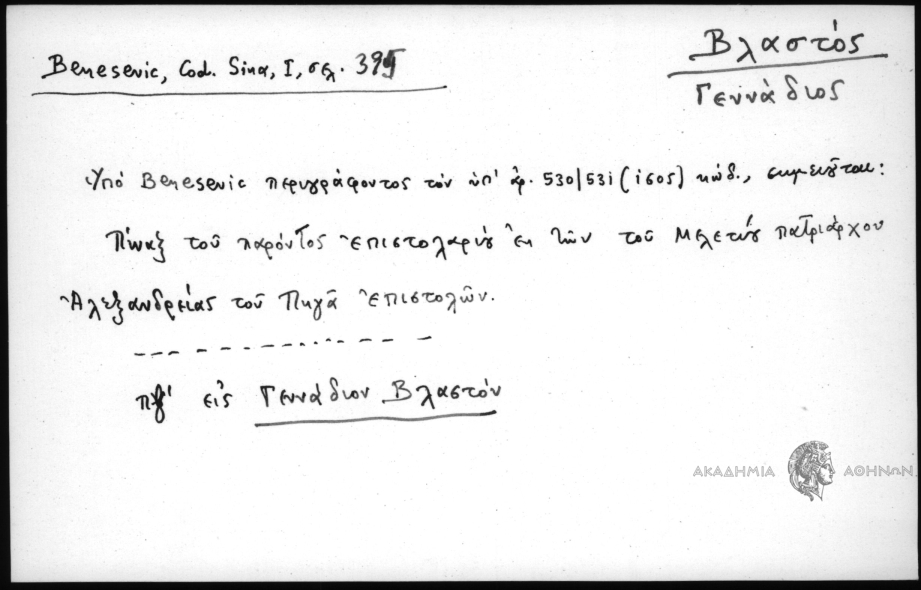 Βλαστός
Γεννάδιος
Benesevic, Cod. Sina, I, σελ. 395
Ὑπό Benesevic περιγράφοντος τόν ὑπ' ἀρ. 530/531 (ἴσος) κώδ., σημειοῦται:
Πίναξ τοῦ παρόντος ἐπιστολαρίου ἐκ τῶν τοῦ Μελετίου πατριάρχου
Ἀλεξανδρείας τοῦ Πηγᾶ ἐπιστολῶν.
εἰς Γεννάδιον Βλαστόν
ΑΚΑΔΗΜΙΑ ΑΘΗΝΩΝ